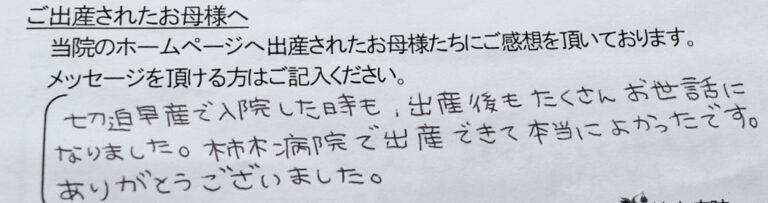 ご出産されたお母様へ
当院のホームページへ出産されたお母様たちにご感想を頂いております。
メッセージを頂ける方はご記入ください。
切迫早産で入院した時も、出産後もたくさんお世話に
なりました。柿木病院で出産できて本当によかったです。
ありがとうございました。